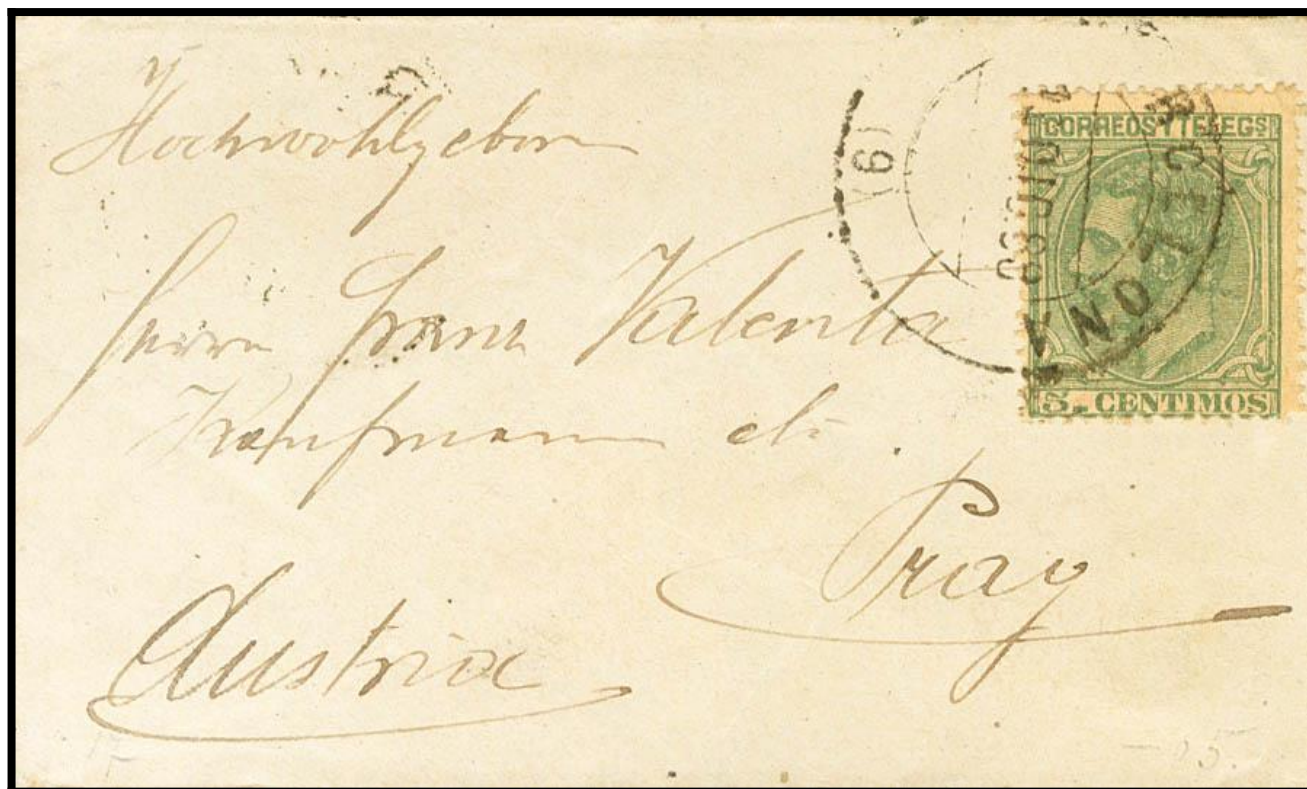 Hochwohlgeboren
Herrn Franz Valenta
Kaufmann etc.
Prag
Austria
CORREOS Y TELEGS
5. CENTIMOS
BARCELONA
(9)